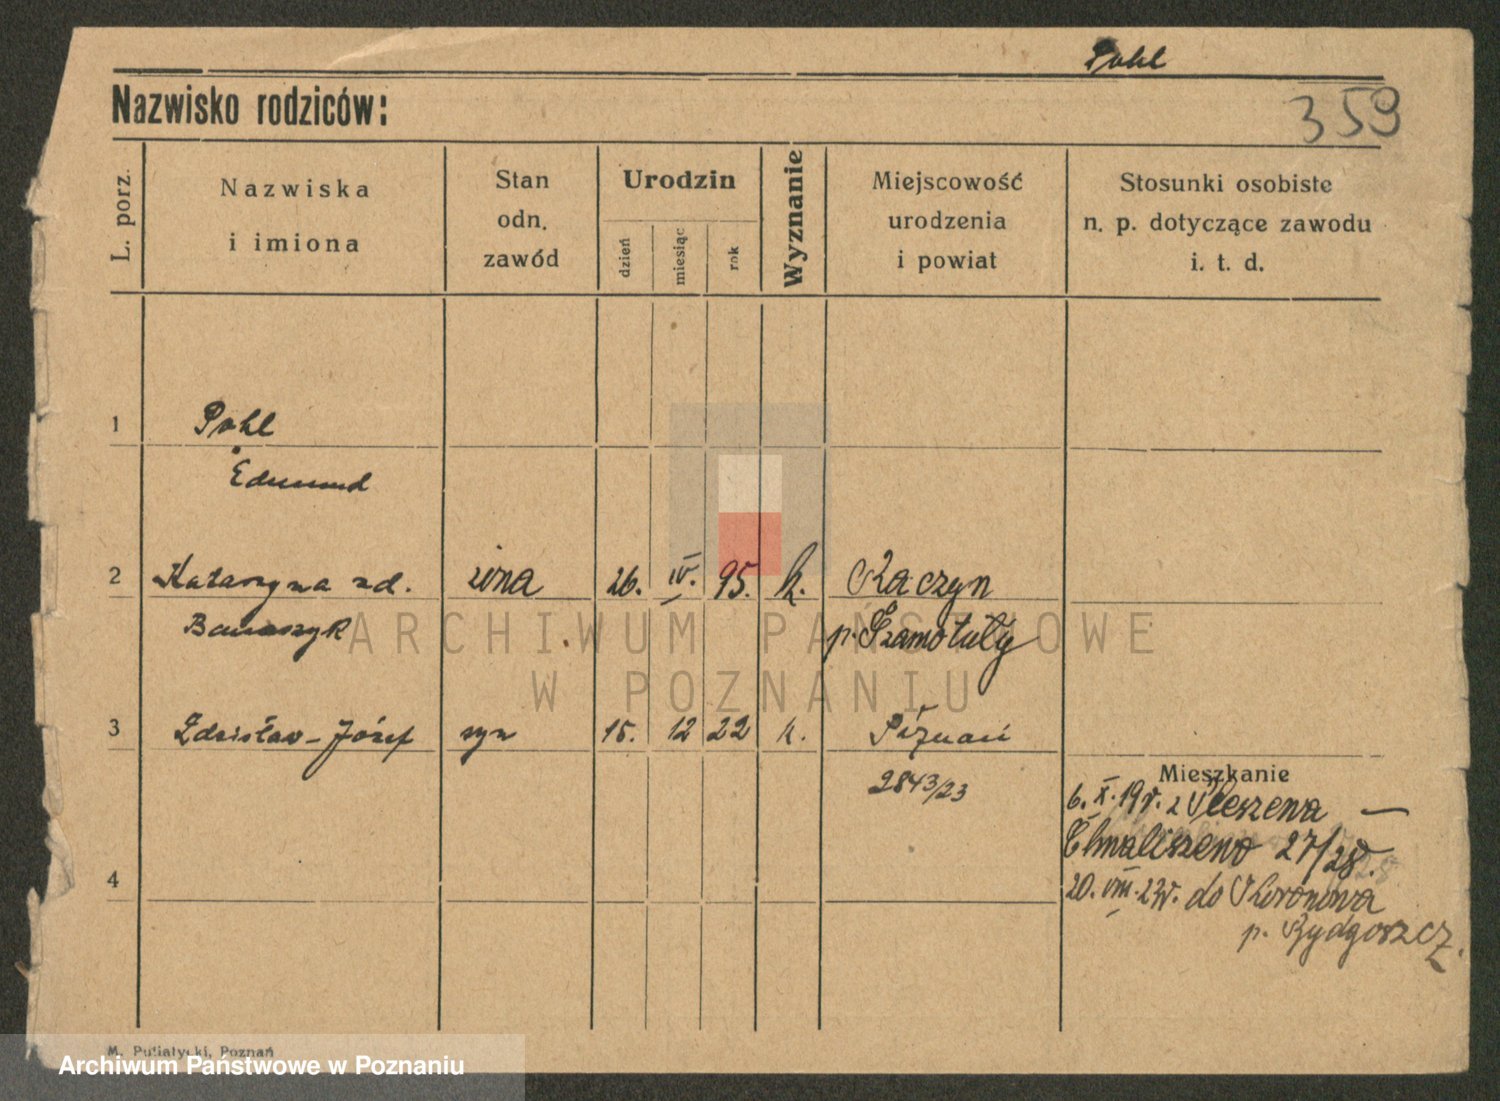 Pohl
Nazwisko rodziców:
359
L. porz.
Nazwiska
i imiona
Stan
odn.
zawód
Urodzin
dzień
miesiąc
rok
Wyznanie
Miejscowość
urodzenia
i powiat
Stosunki osobiste
n. p. dotyczące zawodu
i. t. d.
1 Pohl
Edmund
2 Katarzyna zd. żona 26. IV. 95. k. Kaczyn
p. Szamotuły
ARCHIWUM PAŃSTWOWE
W POZNANIU
3 Zdzisław-Józef syn 15. 12 22 k. Poznań
2843/23
Mieszkanie
6. X. 19r. z Pleszewa —
Chwaliszewo 27/28.
4
20. VIII. 23r. do Koronowa
p. Bydgoszcz.
M. Putiatycki, Poznań
Archiwum Państwowe w Poznaniu